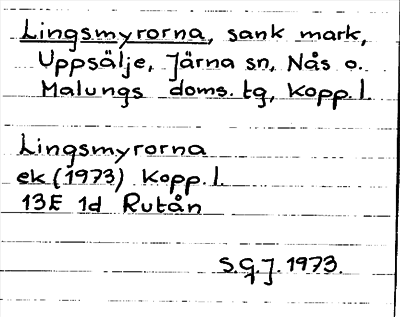 Lingsmyrorna, sank mark,
Uppsälje, Järna sn, Nås o.
Malungs doms. tg, Kopp. l.
Lingsmyrorna
ek (1973) Kopp. l.
13E 1d Rutån
S.G.J. 1973.